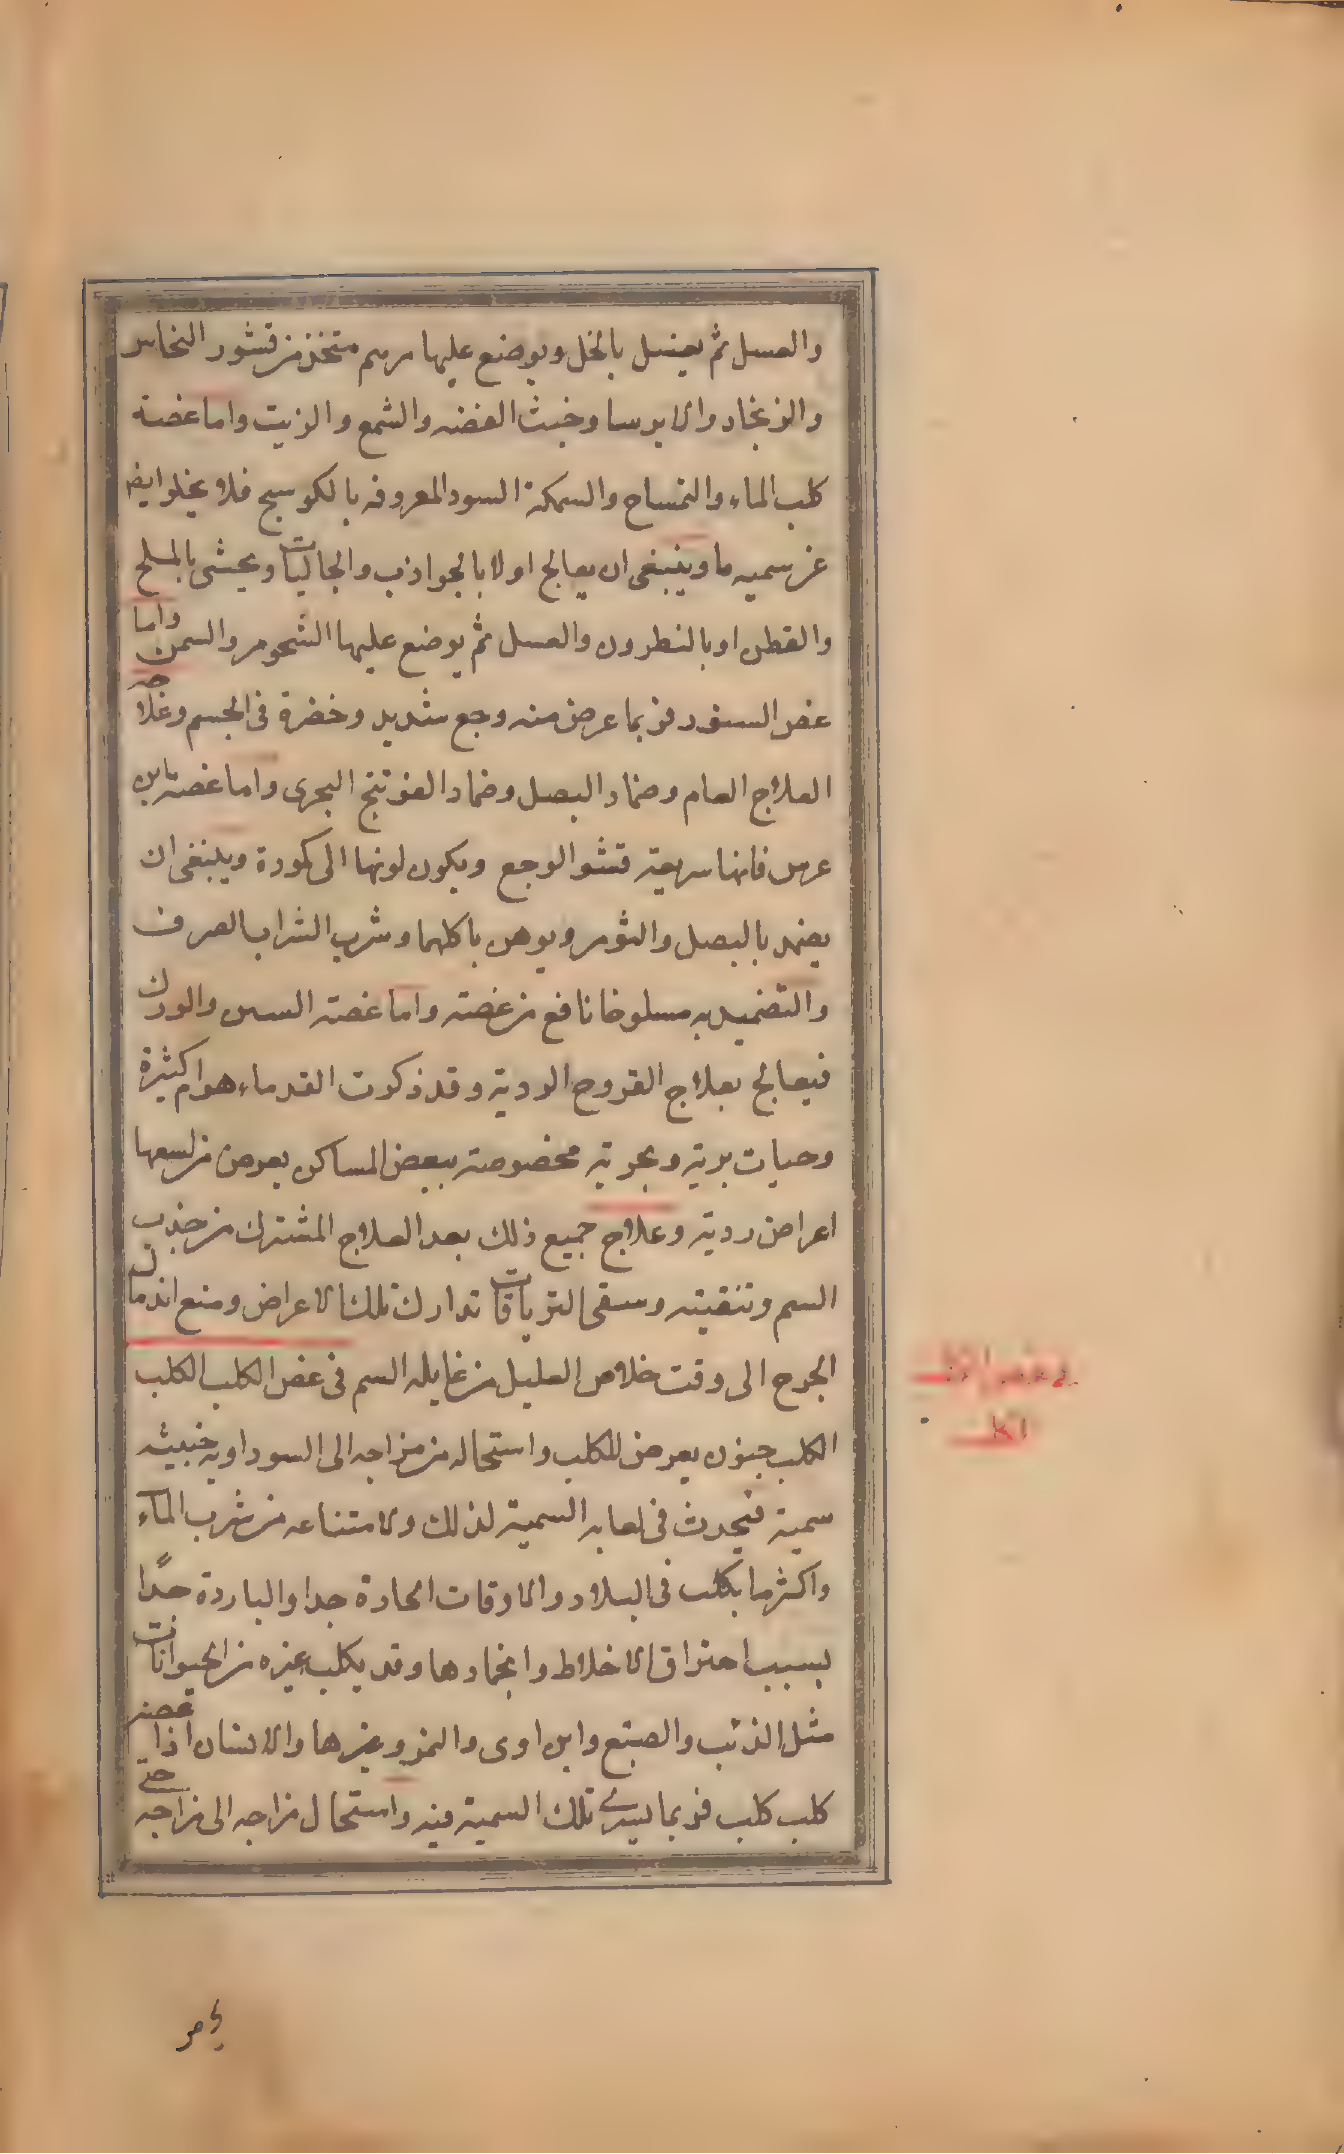 والعسل ثم يغسل بالخل ويوضع عليها مرهم متخذ من قشور النحاس
والزنجار والايرسا وخبث الفضه والشمع والزيت واما عضة
كلب الماء والتمساح والسمكة السود المعروفه بالكوسج فلا يخلوا ايضا
عن سميه ما وينبغى ان يعالج اولا بالجواذب والجاليات ويحشى بالملح
والقطن او بالنطرون والعسل ثم يوضع عليها الشحوم والسمن واما
عض السنور فربما عرض منه وجع شديد وخضرة فى الجسم وعلاجه
العلاج العام وضماد البصل وضماد الفوتنج البحرى واما عضة ابن
عرس فانها سريعة فشو الوجع ويكون لونها الى كمودة وينبغى ان
يضمد بالبصل والثوم ويوهن باكلهما وشرب الشراب الصرف
والتضميد به مسلوخا نافع من عضته واما عضة السس والورل
فيعالج بعلاج القروح الردية وقد ذكرت القدماء هوام كثيرة
وحيات برية وبحرية مخصوصة ببعض المساكن يعرض من لسعها
اعراض ردية وعلاج جميع ذلك بعد العلاج المشترك من جذب
السم وتنقيته وسقى الترياقات تدارك تلك الاعراض ومنع اندمال
الجرح الى وقت خلاص العليل من غايله السم فى عض الكلب الكلب
الكلب جنون يعرض للكلب واستحاله من مزاجه الى السوداويه خبيثه
سمية فيحدث فى لعابه السمية لذلك ولامتناعه من شرب الماء
واكثر ما يكلب فى البلاد والاوقات الحادة جدا والباردة جدًا
بسبب احتراق الاخلاط وانجمادها وقد يكلب غيره من الحيوانات
مثل الذئب والضبع وابن اوى والنمر وغيرها والانسان اذا عضه
كلب كلب فربما يسرى تلك السمية فيه واستحال مزاجه الى مزاجه حتى
فى عض الكلب
الكلب